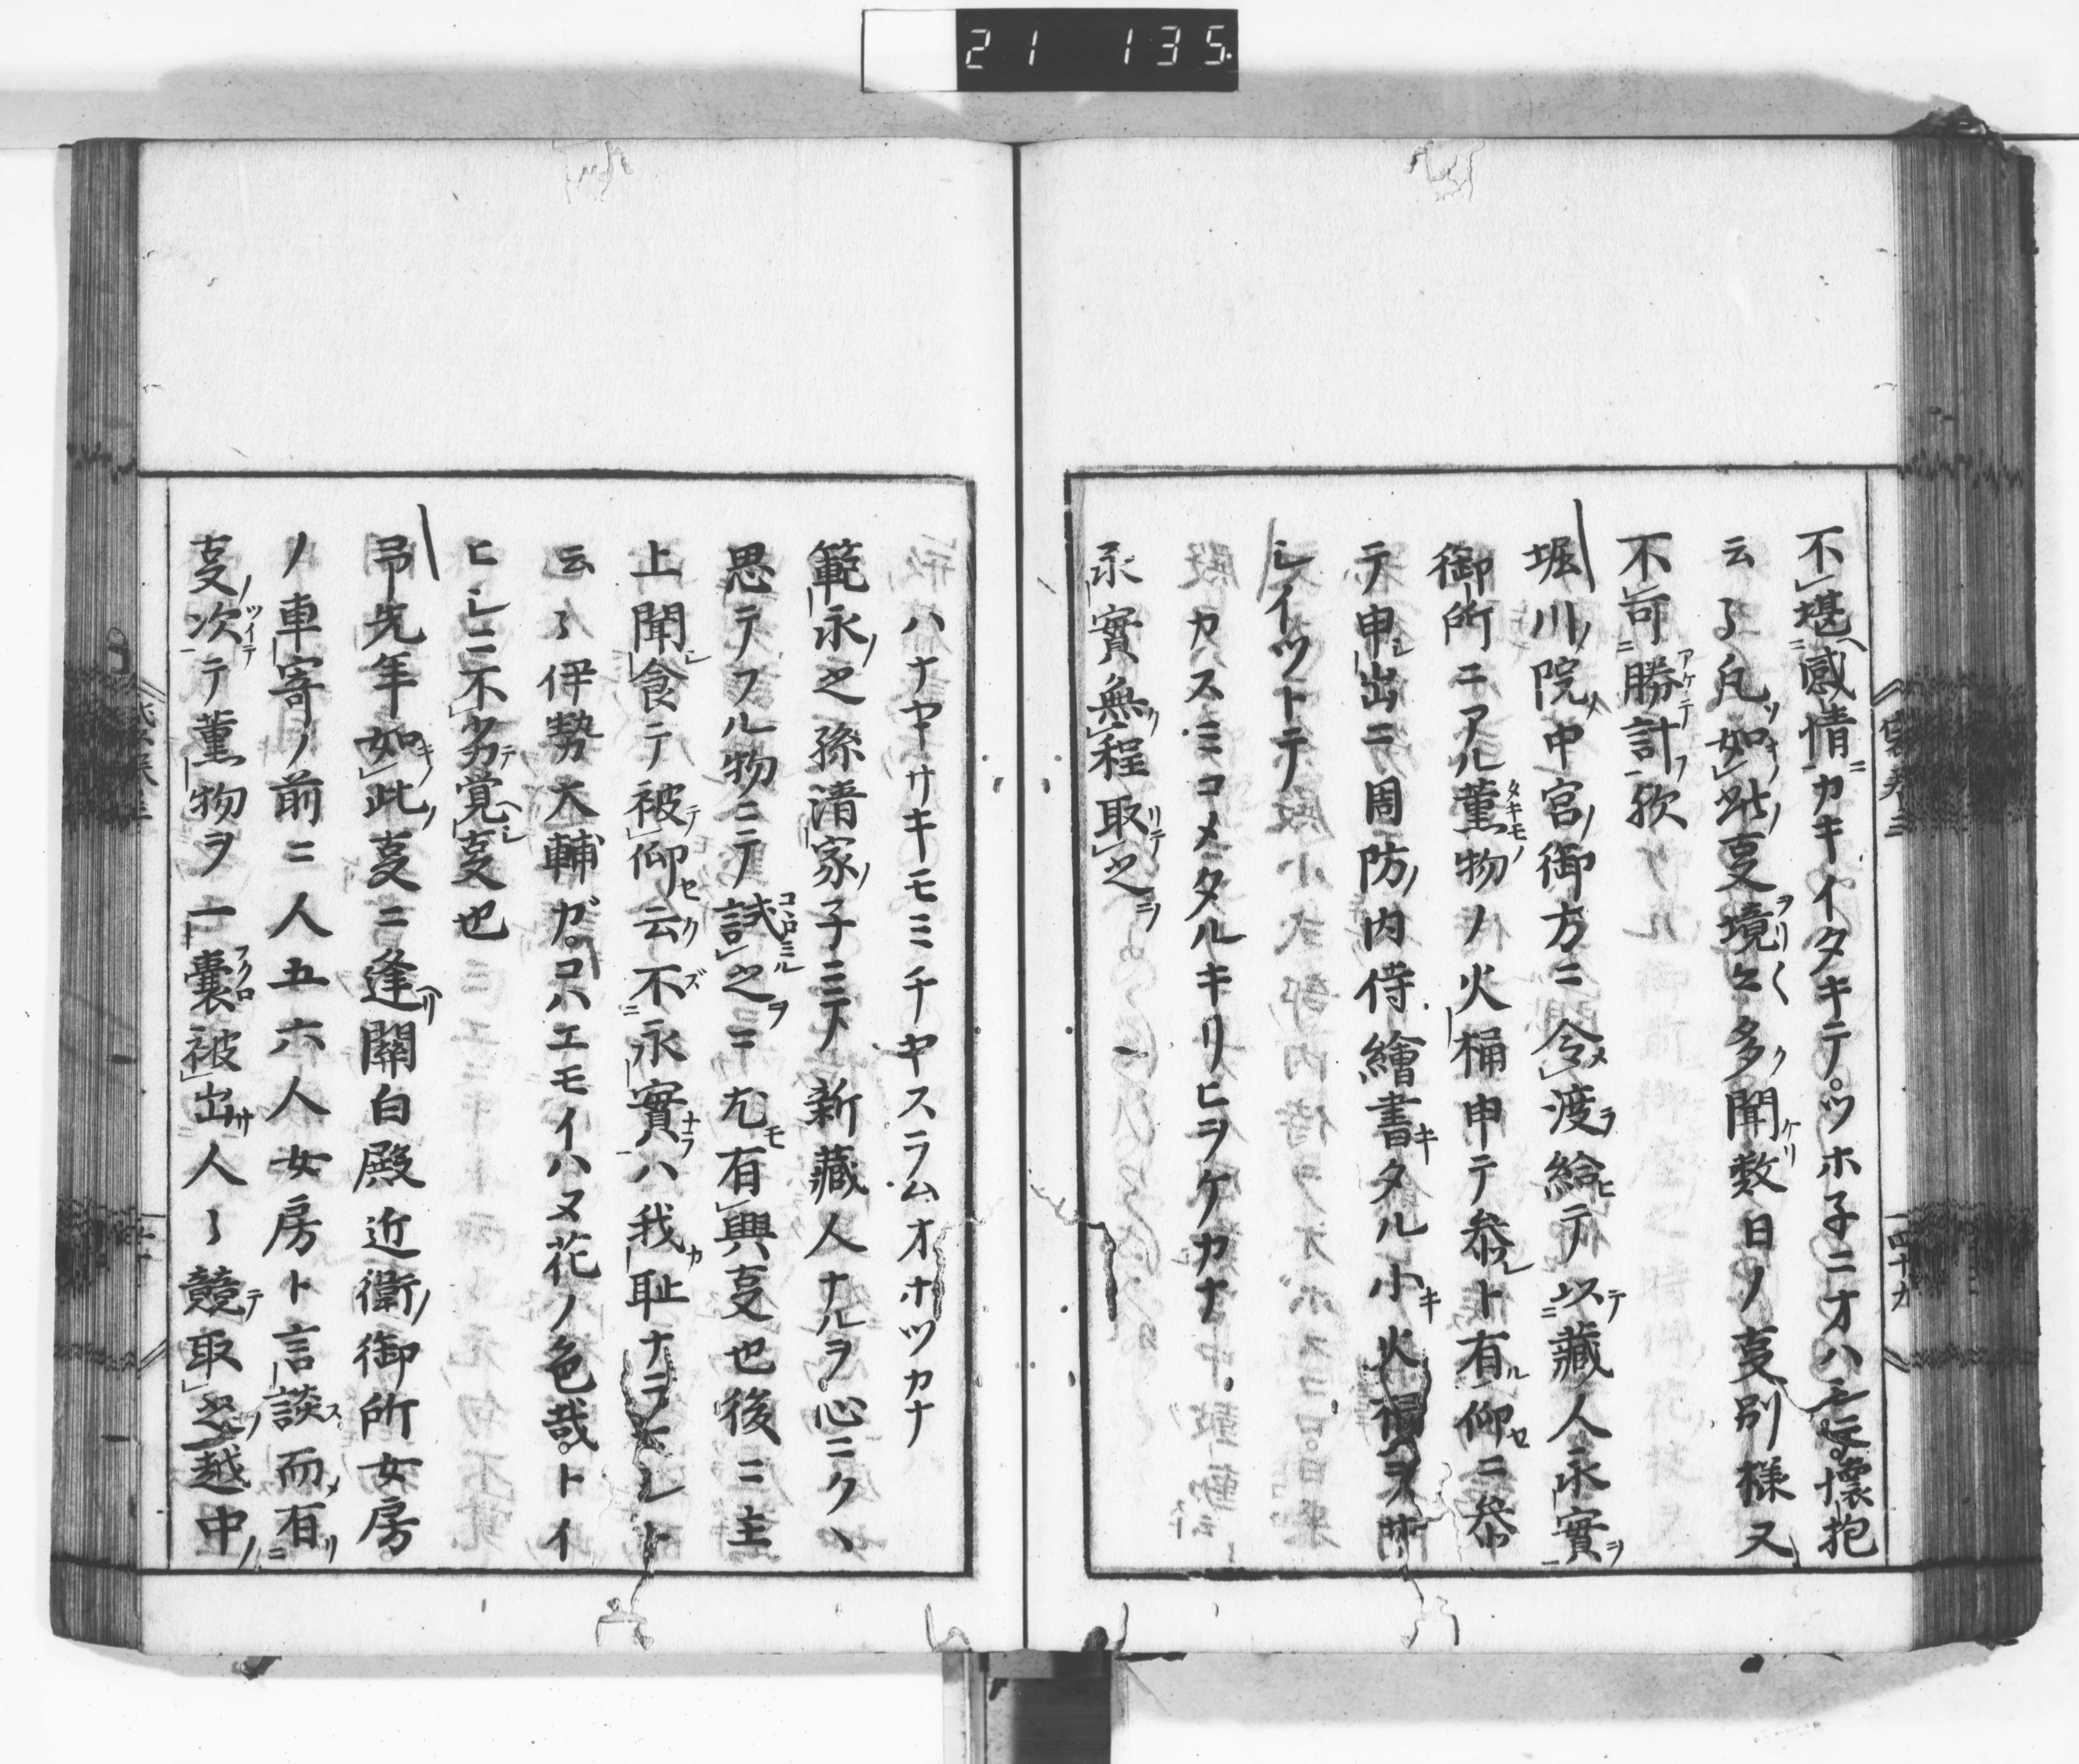 21 135
不堪感情カキイタキテ。ツホネニオハ云。懐抱
云々凡如此事境々多聞数日ノ事別様又
不可勝計歟
堀川院中宮御方ニ令渡給テ以蔵人永實
御所ニアル薫物ノ火桶申テ参レト有仰ニ参
テ申出ニ周防内侍繪書タル小火桶ヲ
シイツトテ
カスミコメタルキリヒヲケカナ
永實無程取之
ハナヤサキモミチヤスラムオホツカナ
範永之孫清家子ニテ新藏人ナルヲ心ニクヽ
思テフル物ニテ試之ニ尤有興事也後ニ主
上聞食テ被仰云不永實ハ我恥ナラマシト
云々伊勢大輔ガ。コハエモイハヌ花ノ色哉。トイ
ヒシニ不劣覚事也
弓先年如此事ニ逢關白殿近衛御所女房
ノ車寄ノ前ニ人五六人女房ト言談而有
事次テ薫物ヲ一嚢被出人々競取之越中